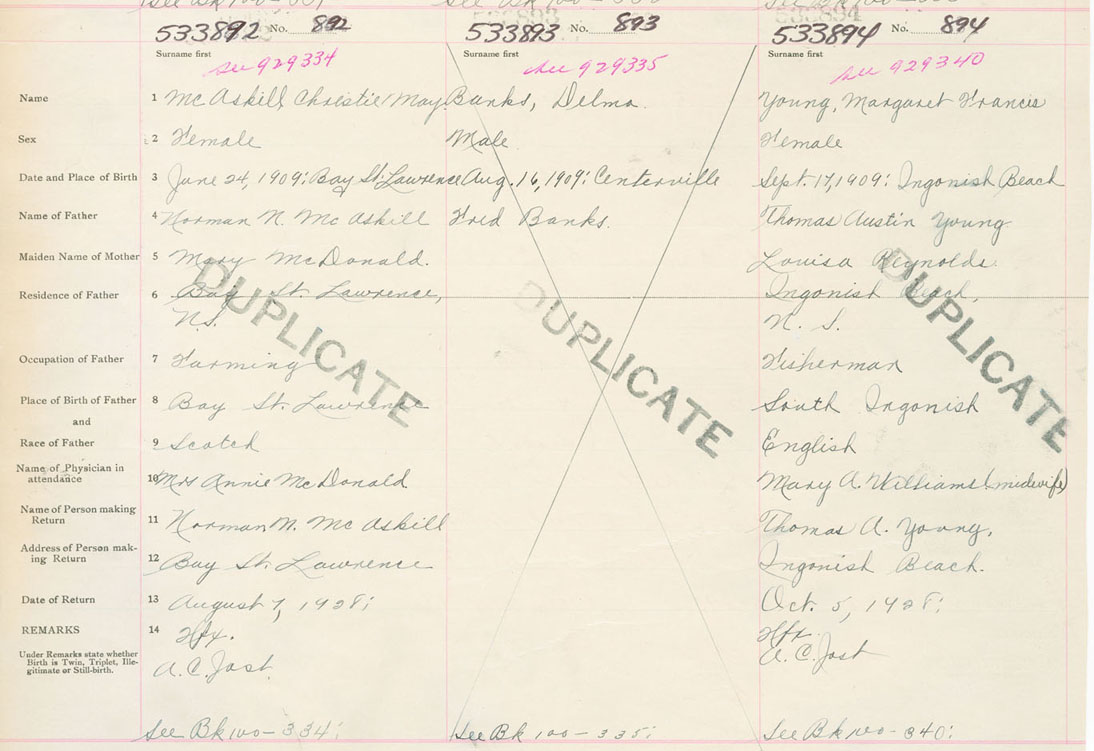 533892 No. 892
533893 No. 893
533894 No. 894
Surname first
Surname first
Surname first
see 929334
see 929335
see 929340
Name 1 McAskill Christie May Banks, Delma. Young, Margaret Francis
Sex 2 Female Male Female
Date and Place of Birth 3 June 24, 1909: Bay St. Lawrence Aug. 16, 1909: Centerville Sept. 17, 1909: Ingonish Beach
Name of Father 4 Norman N. McAskill Fred Banks. Thomas Austin Young
Maiden Name of Mother 5 Mary McDonald. Louisa Reynolds.
Residence of Father 6 Bay St. Lawrence, Ingonish Beach,
N.S. N. S.
DUPLICATE DUPLICATE DUPLICATE
Occupation of Father 7 Farming Fisherman
Place of Birth of Father 8 Bay St. Lawrence South Ingonish
and
Race of Father 9 Scotch English
Name of Physician in
attendance 10 Mrs Annie McDonald Mary A. Williams (midwife)
Name of Person making
Return 11 Norman N. McAskill Thomas A. Young,
Address of Person mak-
ing Return 12 Bay St. Lawrence Ingonish Beach.
Date of Return 13 August 7, 1928; Oct. 5, 1928;
REMARKS 14 Hfx. Hfx.
Under Remarks state whether
Birth is Twin, Triplet, Ille-
gitimate or Still-birth.
A. C. Jost. A. C. Jost
See Bk 100-334; See Bk 100-335; See Bk 100-340;